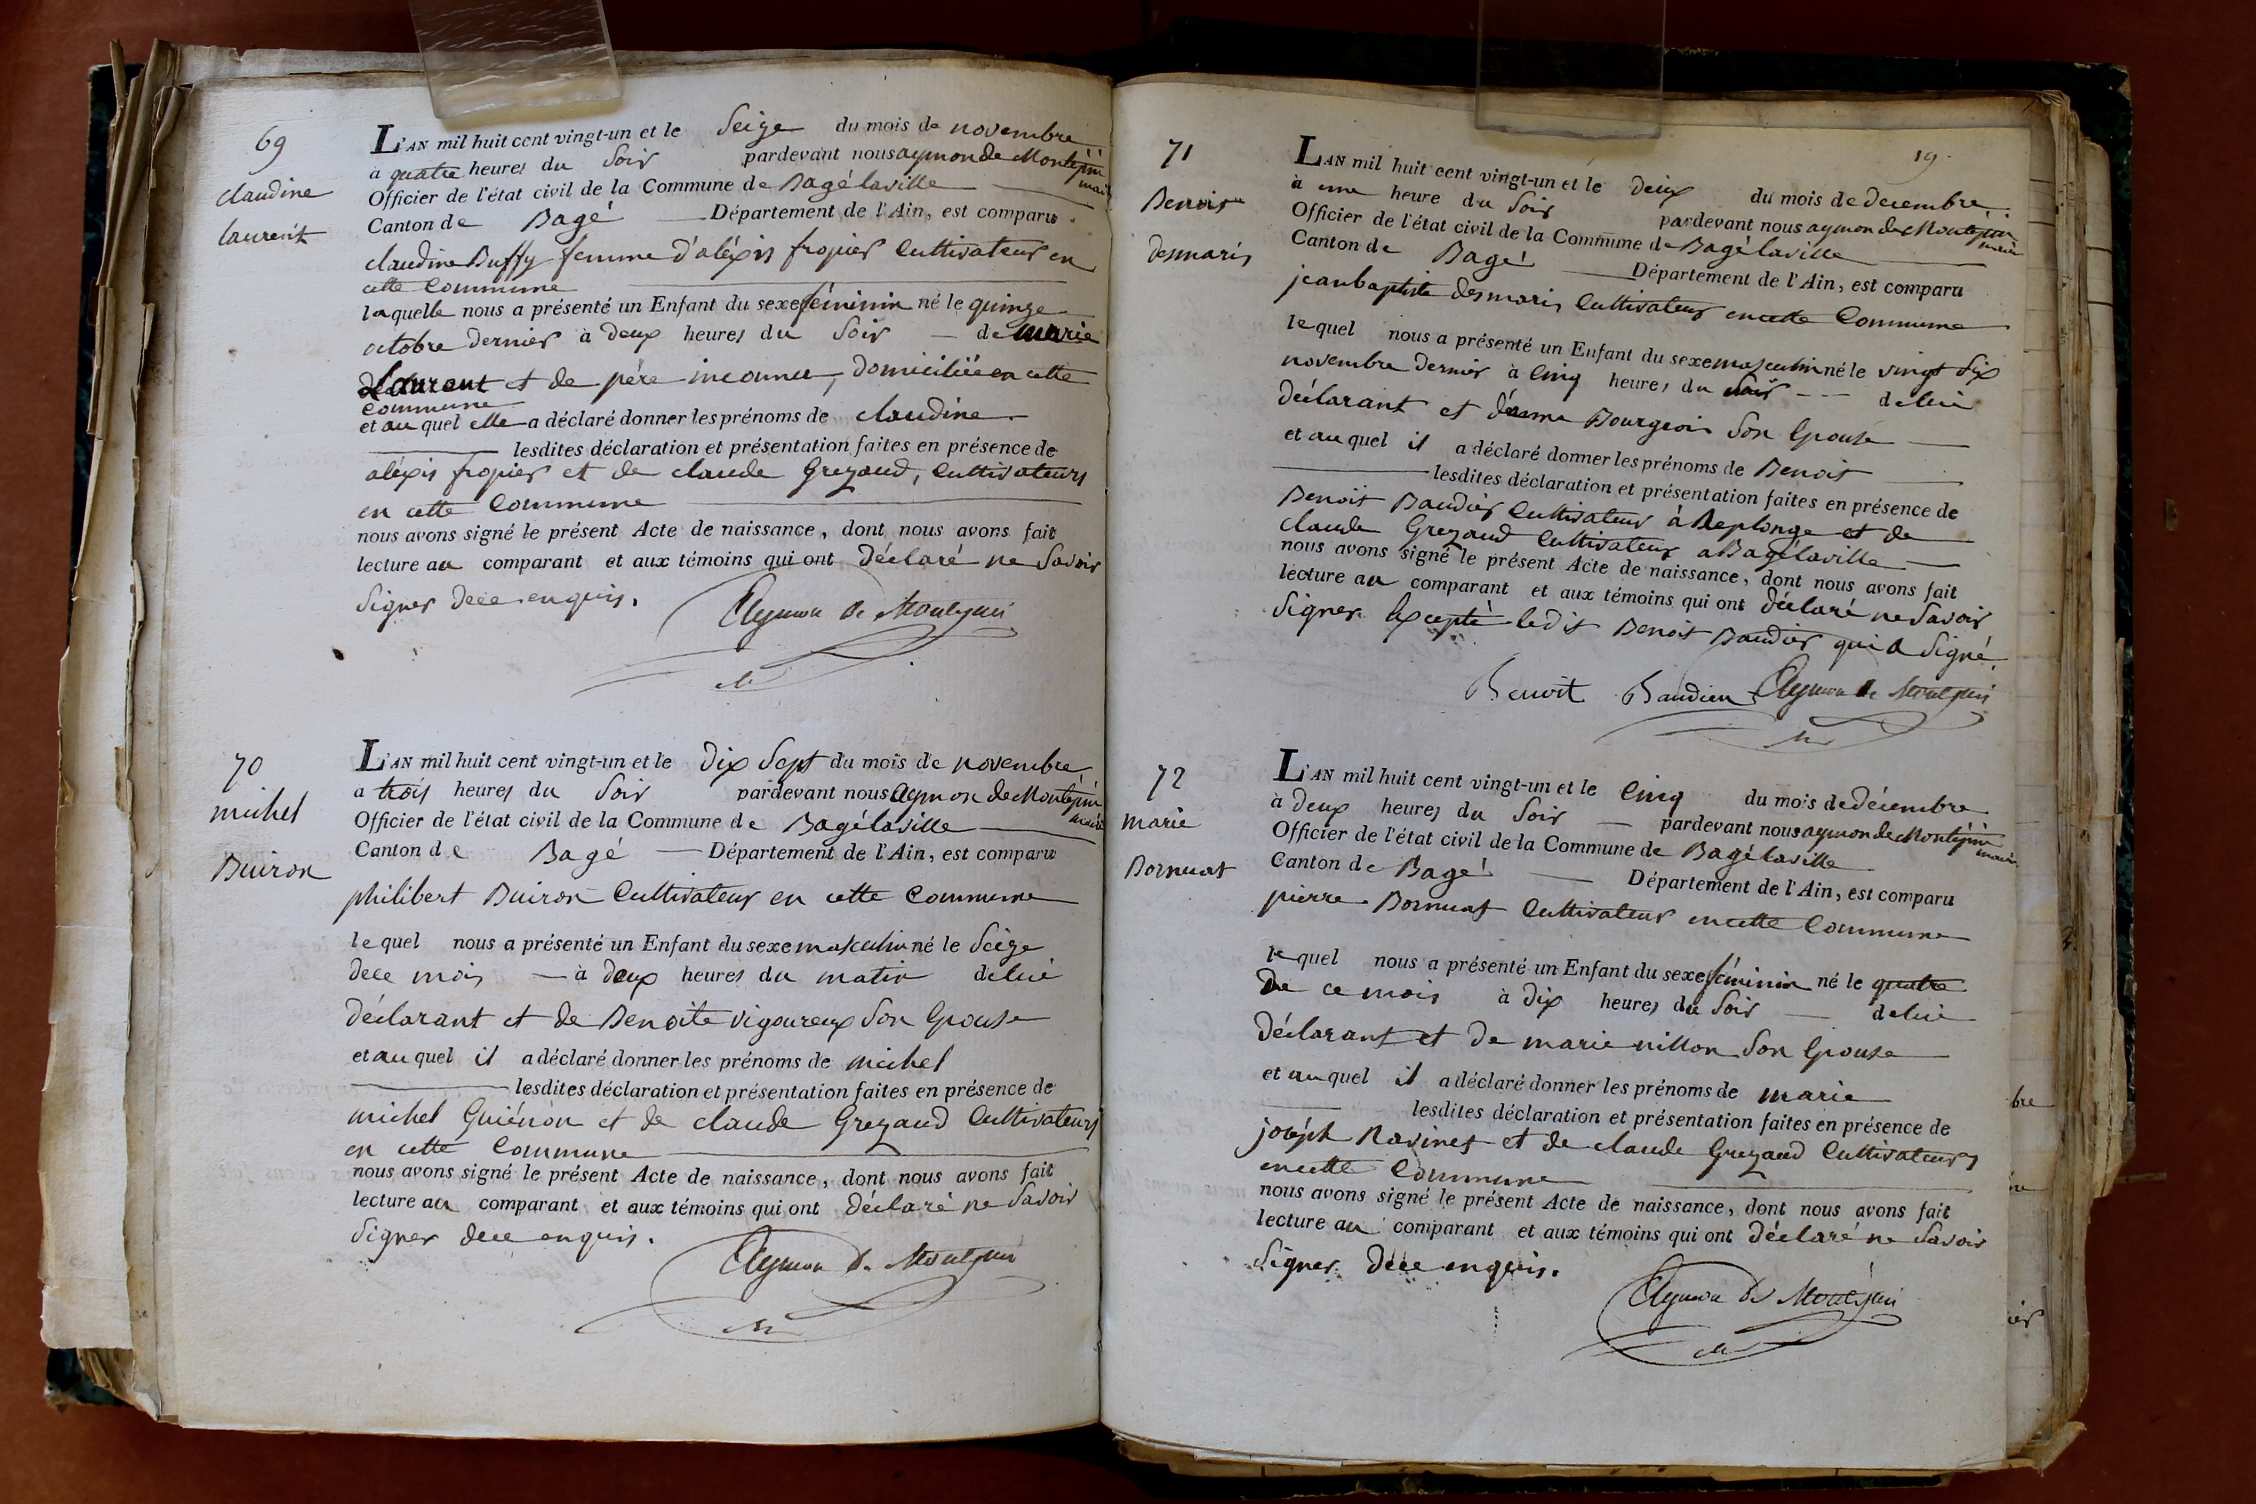 69
claudine
laurent
L'AN mil huit cent vingt-un et le Seize du mois de novembre
à quatre heures du Soir pardevant nous aymon de Montépin
maire
Officier de l'état civil de la Commune de Bagé laville
Canton de Bagé Département de l'Ain, est comparu
claudine Buffy femme d'aléxis fropier Cultivateur en
cette Commune
laquelle nous a présenté un Enfant du sexe féminin né le quinze
octobre dernier à deux heures du Soir de marie
Laurent et de père inconnu, domiciliée en cette
commune
et au quel elle a déclaré donner les prénoms de claudine
lesdites déclaration et présentation faites en présence de
aléxis fropier et de claude Grezaud, Cultivateurs
en cette Commune
nous avons signé le présent Acte de naissance, dont nous avons fait
lecture au comparant et aux témoins qui ont déclaré ne Savoir
Signer de ce enquis.
Aymon De Montepin
70
michel
Buiron
L'AN mil huit cent vingt-un et le dix Sept du mois de novembre
a trois heures du Soir pardevant nous Aymon de Montépin
maire
Officier de l'état civil de la Commune de Bagé laville
Canton de Bagé Département de l'Ain, est comparu
philibert Buiron Cultivateur en cette Commune
lequel nous a présenté un Enfant du sexe masculin né le Seize
de ce mois à deux heures du matin de lui
déclarant et de Benoite vigoureux Son Epouse
et au quel il a déclaré donner les prénoms de michel
lesdites déclaration et présentation faites en présence de
michel Guiénon et de claude Grezaud Cultivateurs
en cette Commune
nous avons signé le présent Acte de naissance, dont nous avons fait
lecture au comparant et aux témoins qui ont déclaré ne Savoir
Signer de ce enquis.
Aymon De Montepin
19.
71
Benoit
desmaris
L'AN mil huit cent vingt-un et le deux du mois de decembre
à une heure du Soir pardevant nous aymon de Montépin
maire
Officier de l'état civil de la Commune de Bagé laville
Canton de Bagé Département de l'Ain, est comparu
jean baptiste desmaris Cultivateur en cette Commune
lequel nous a présenté un Enfant du sexe masculin né le vingt Six
novembre dernier à Cinq heures du Soir de lui
déclarant et d'anne Bourgeois Son Epouse
et au quel il a déclaré donner les prénoms de Benoit
lesdites déclaration et présentation faites en présence de
Benoit Baudier Cultivateur à Replonge et de
claude Grezaud Cultivateur a Bagé laville
nous avons signé le présent Acte de naissance, dont nous avons fait
lecture au comparant et aux témoins qui ont déclaré ne Savoir
Signer Excepté ledit Benoit Baudier qui a Signé
Benoit Baudier Aymon De Montepin
72
marie
Bornuat
L'AN mil huit cent vingt-un et le Cinq du mois de décembre
à deux heures du Soir pardevant nous aymon de Montépin
maire
Officier de l'état civil de la Commune de Bagé laville
Canton de Bagé Département de l'Ain, est comparu
pierre Bornuat Cultivateur en cette Commune
lequel nous a présenté un Enfant du sexe féminin né le quatre
De ce mois à dix heures du Soir de lui
déclarant et de marie nillon Son Epouse
et au quel il a déclaré donner les prénoms de marie
lesdites déclaration et présentation faites en présence de
joséph Ravinet et de claude Grezaud Cultivateurs
en cette Commune
nous avons signé le présent Acte de naissance, dont nous avons fait
lecture au comparant et aux témoins qui ont déclaré ne Savoir
Signer de ce enquis.
Aymon De Montépin